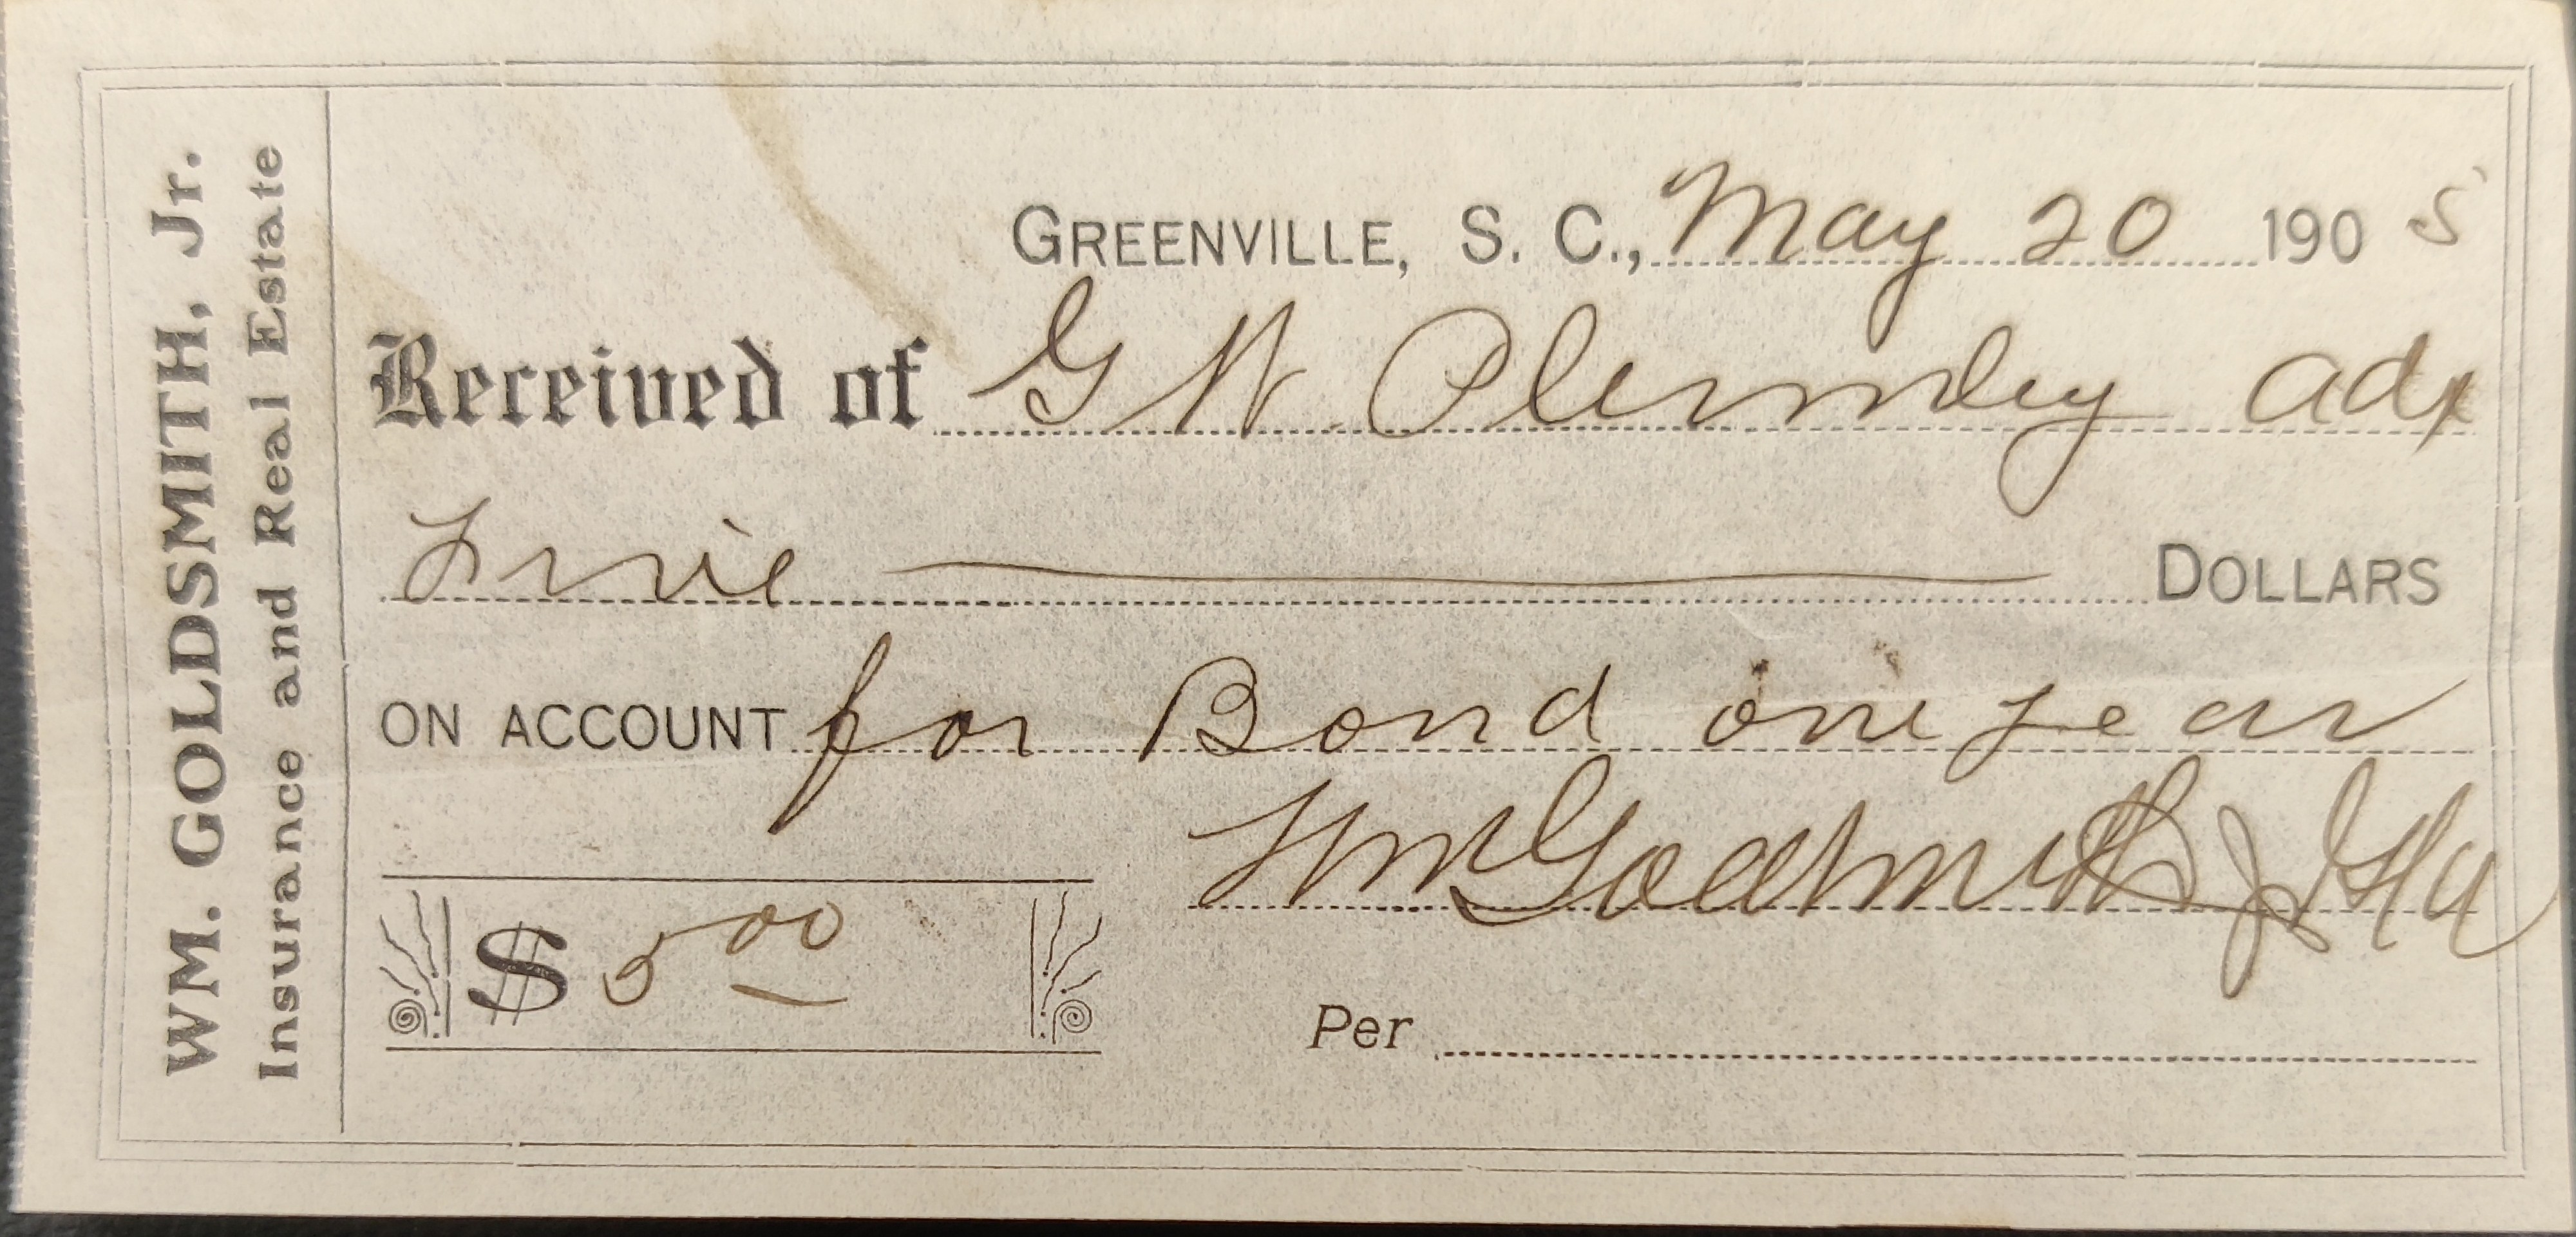 WM. GOLDSMITH, Jr.
Insurance and Real Estate
GREENVILLE, S. C., May 20 1905
Received of G W Plumley adx
Five DOLLARS
ON ACCOUNT for Bond one year
Wm Goldsmith Jr
$ 5 00
Per